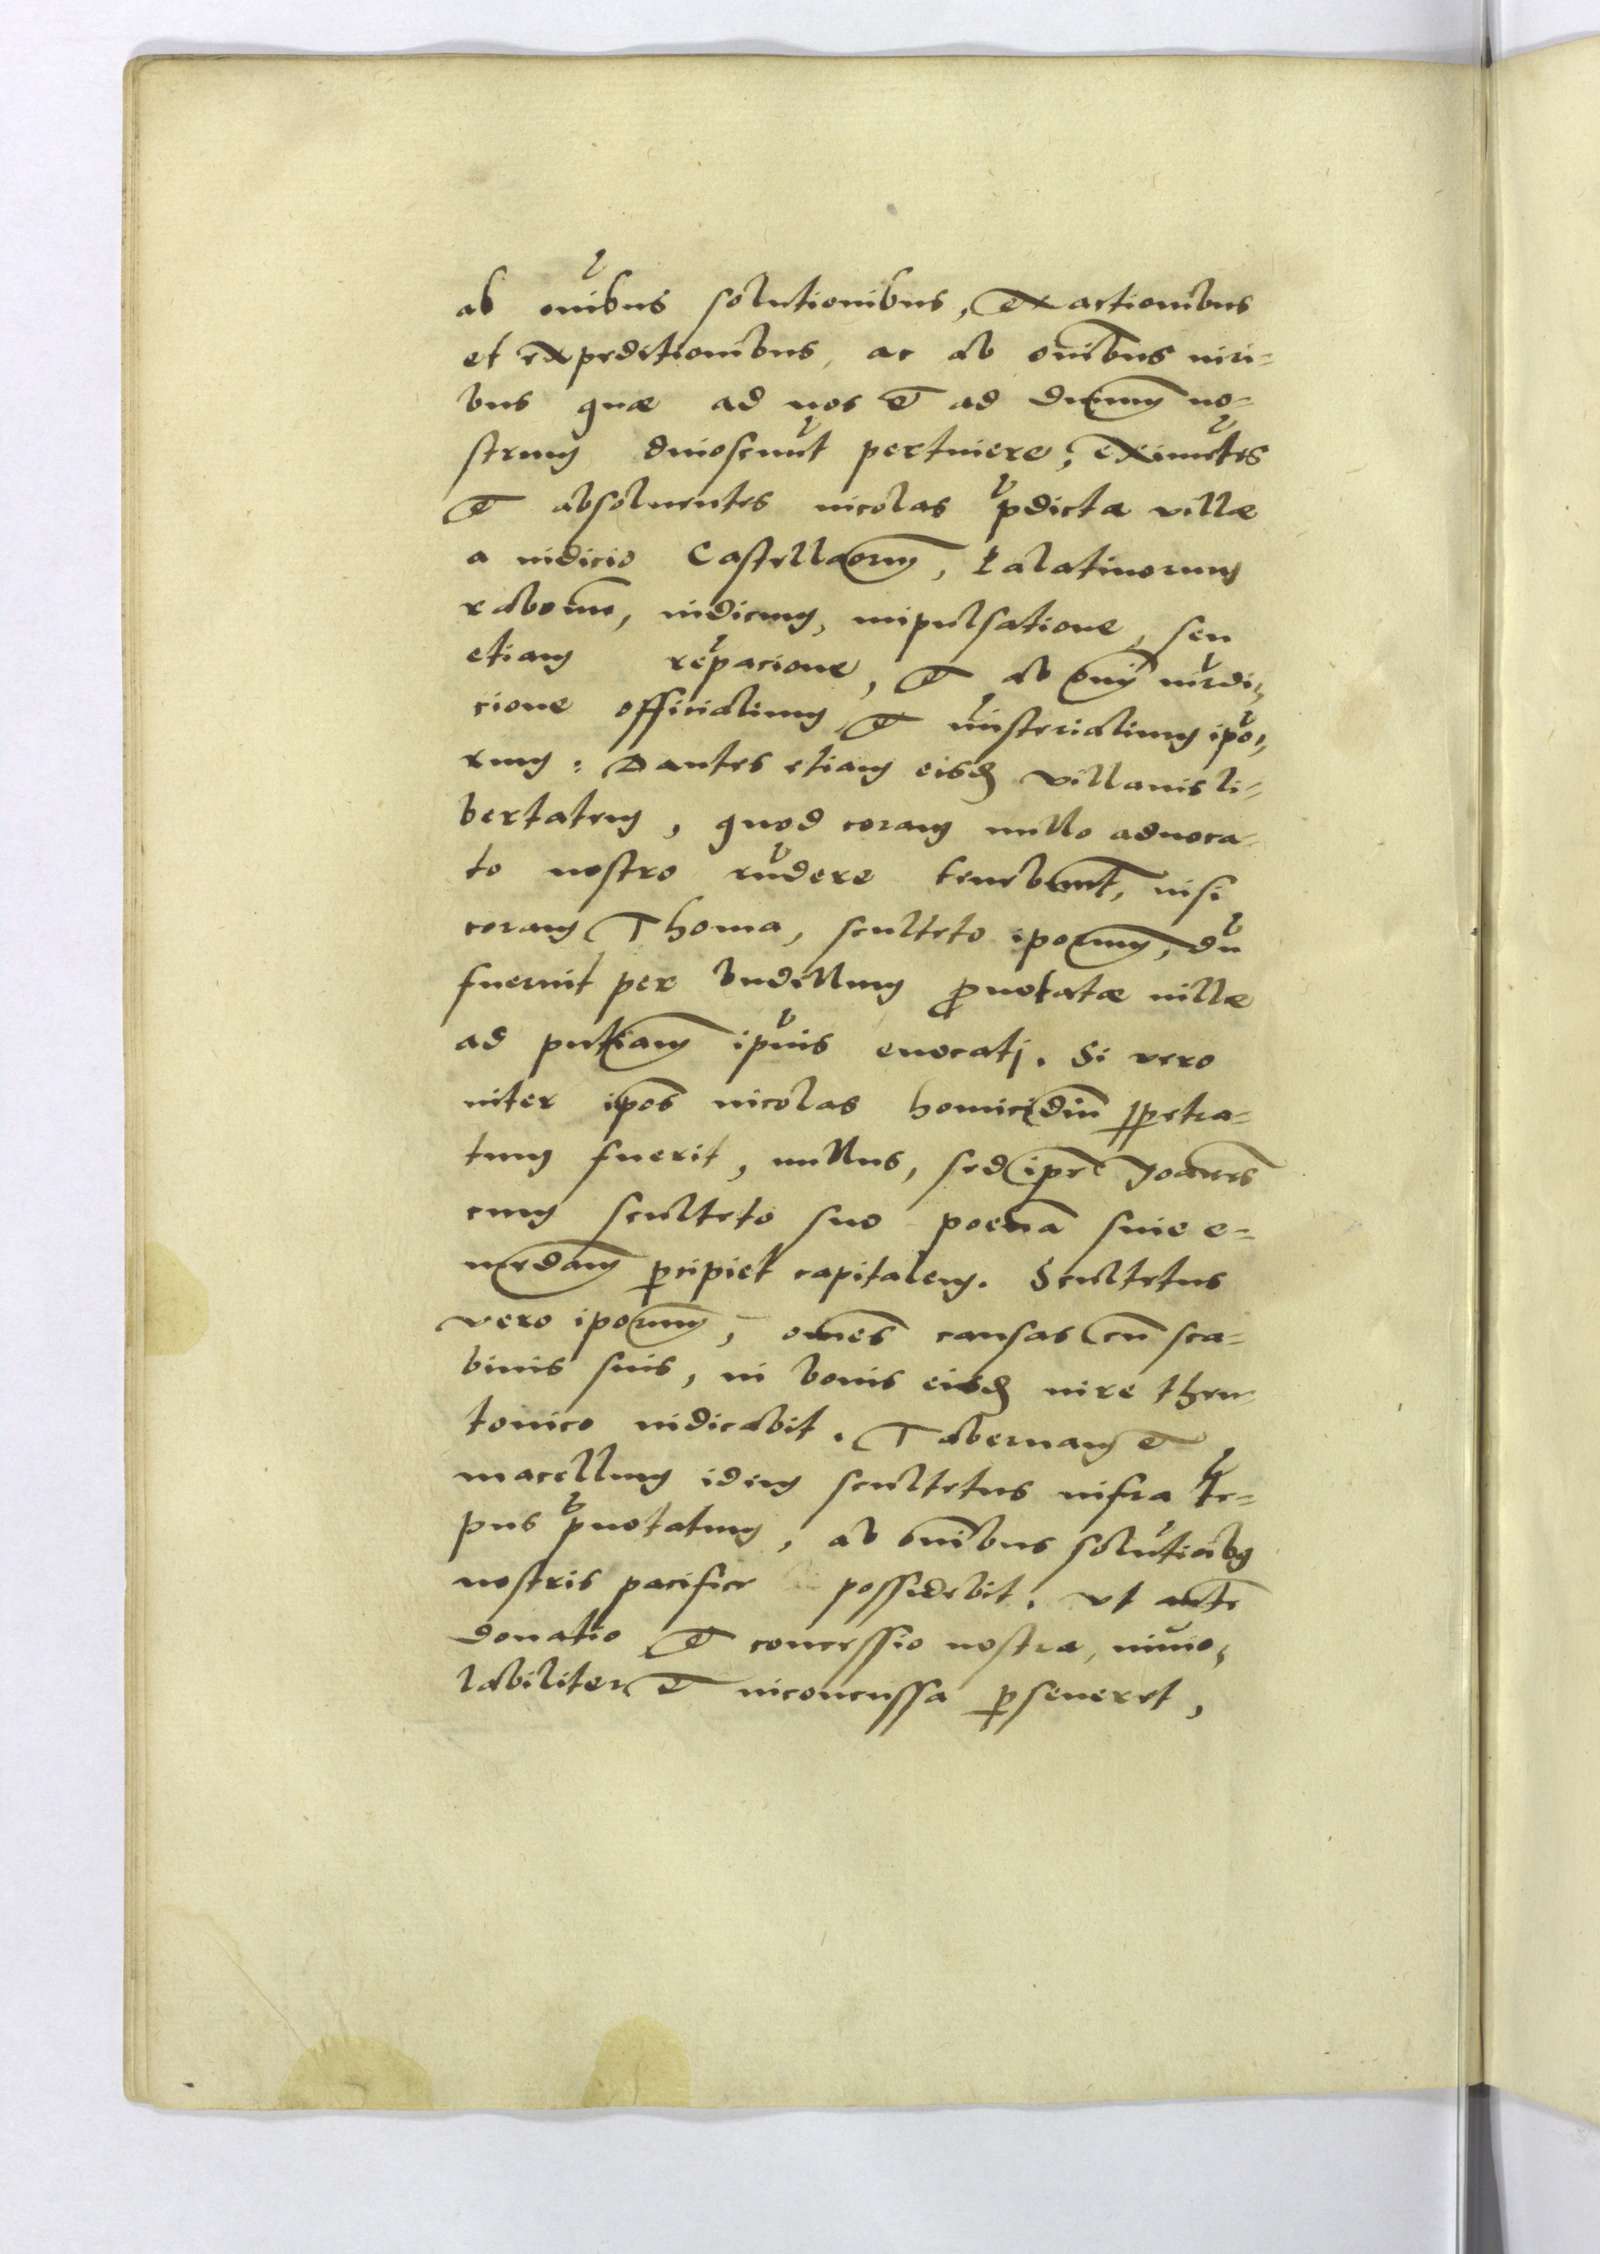 ab oibus solutionibus, exactionibus
et expeditionibus, ac ab oibus iuri-
bus quæ ad nos et ad dnium no-
strum dinoscunt pertinere, eximetes
et absoluentes incolas pdictæ villæ
a iudicio Castellaorum, Palatinorum
iudicum, impulsatione, seu
etiam , et ab omi iurdi-
cione officialium et misterialium ipo-
rum: Dantes etiam eisd villanis li-
bertatem, quod coram nullo aduoca-
to nostro rndere tenebunt, nisi
coram Thoma, sculteto iporum, du
fuerint per budellum pnotatæ villæ
ad pntiam ipius euocati. Si vero
inter ipos incolas homicidiu ppetra-
tum fuerit, nullus, sed ipse Joannes
cum sculteto suo poena siue e-
medam pcipiet capitalem. Scultetus
vero iporum, omes causas cu sca-
binis suis, in bonis eisd iure theu-
tonico iudicabit. Tabernam et
macellum idem scultetus infra te-
pus pnotatum, ab oibus solutiōibq
nostris pacifice possidebit. Vt aute
donatio et concessio nostra, inuio-
labiliter et inconcussa pseueret,